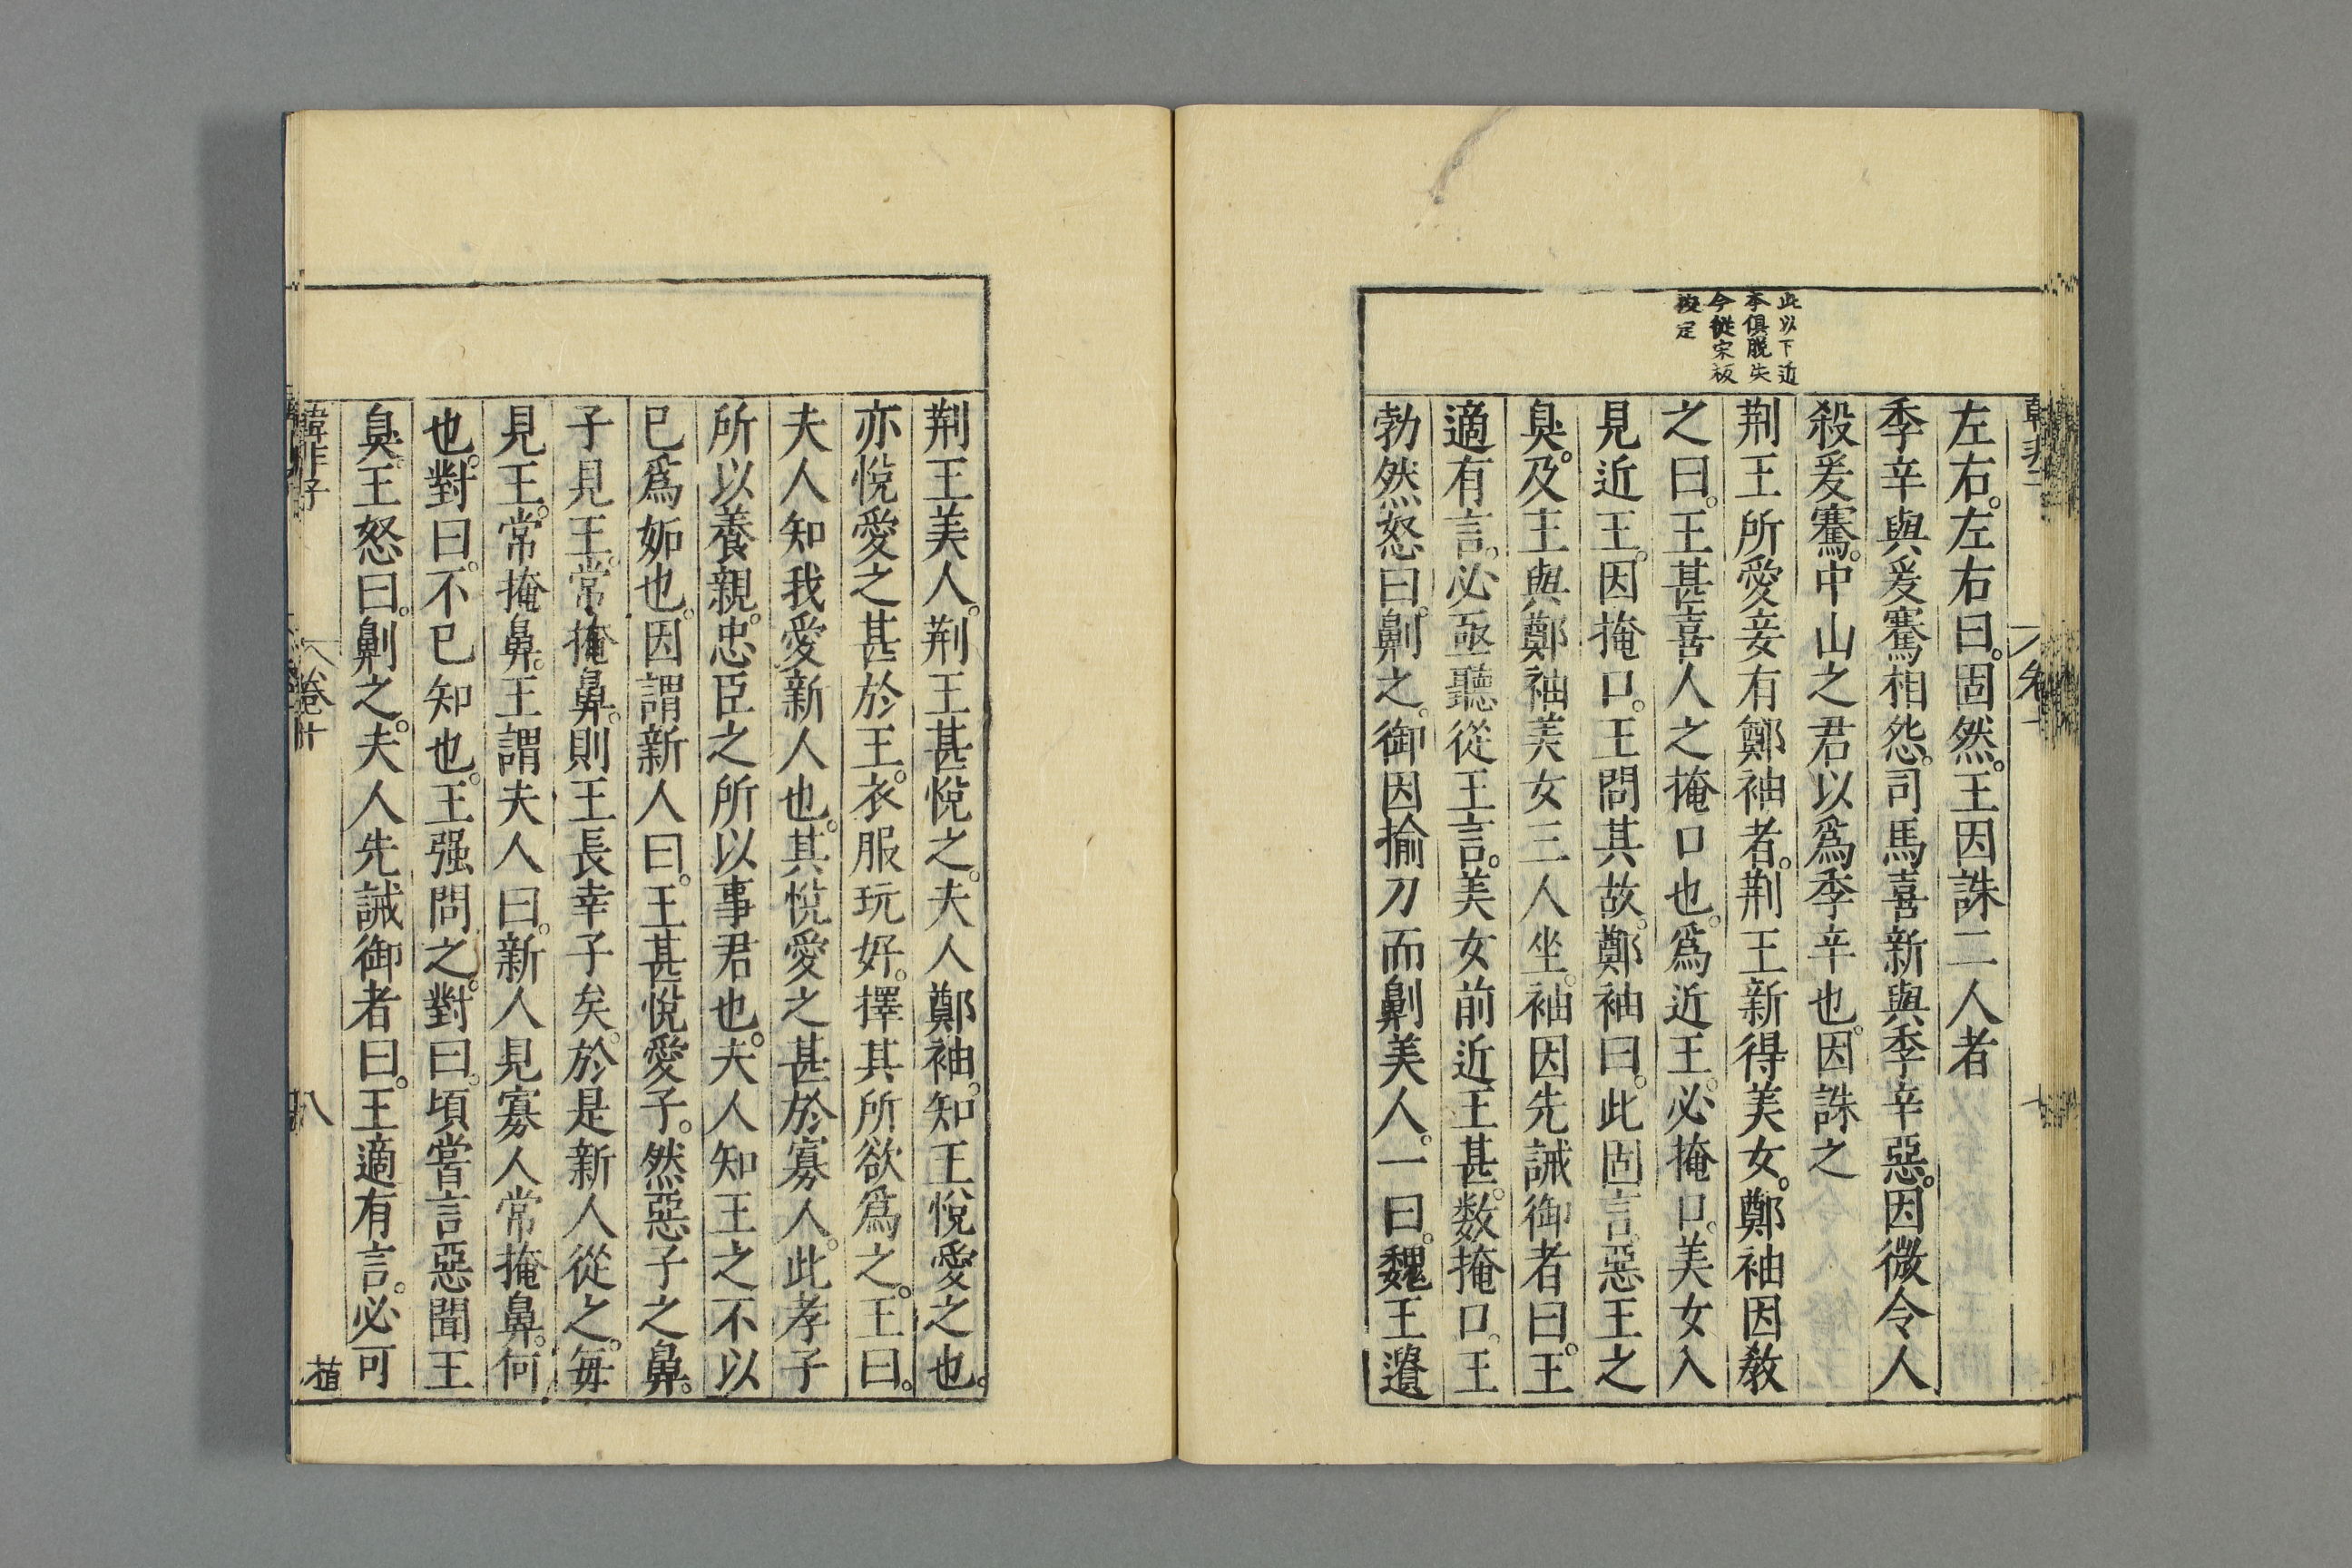 此以下近
本俱脫失
今從宋板
復定
左右。左右曰。固然。王因誅二人者
季辛與爰騫相怨。司馬喜新與季辛惡。因微令人
殺爰騫。中山之君以爲季辛也。因誅之
荆王所愛妾有鄭袖者。荆王新得美女。鄭袖因敎
之曰。王甚喜人之掩口也。爲近王。必掩口。美女入
見近王。因掩口。王問其故。鄭袖曰。此固言惡王之
臭。及王與鄭袖美女三人坐。袖因先誡御者曰。王
適有言。必亟聽從王言。美女前近王甚。数掩口。王
勃然怒曰。劓之。御因揄刀而劓美人。一曰。魏王遺
荆王美人。荆王甚悅之。夫人鄭袖。知王悅愛之也。
亦悅愛之甚於王。衣服玩好。擇其所欲爲之。王曰。
夫人知我愛新人也。其悅愛之甚於寡人。此孝子
所以養親。忠臣之所以事君也。夫人知王之不以
已爲妬也。因謂新人曰。王甚悅愛子。然惡子之鼻。
子見王。常掩鼻。則王長幸子矣。於是新人從之。每
見王。常掩鼻。王謂夫人曰。新人見寡人常掩鼻。何
也。對曰。不已知也。王强問之。對曰。頃嘗言惡聞王
臭。王怒曰。劓之。夫人先誡御者曰。王適有言。必可
韓非子 卷十 八